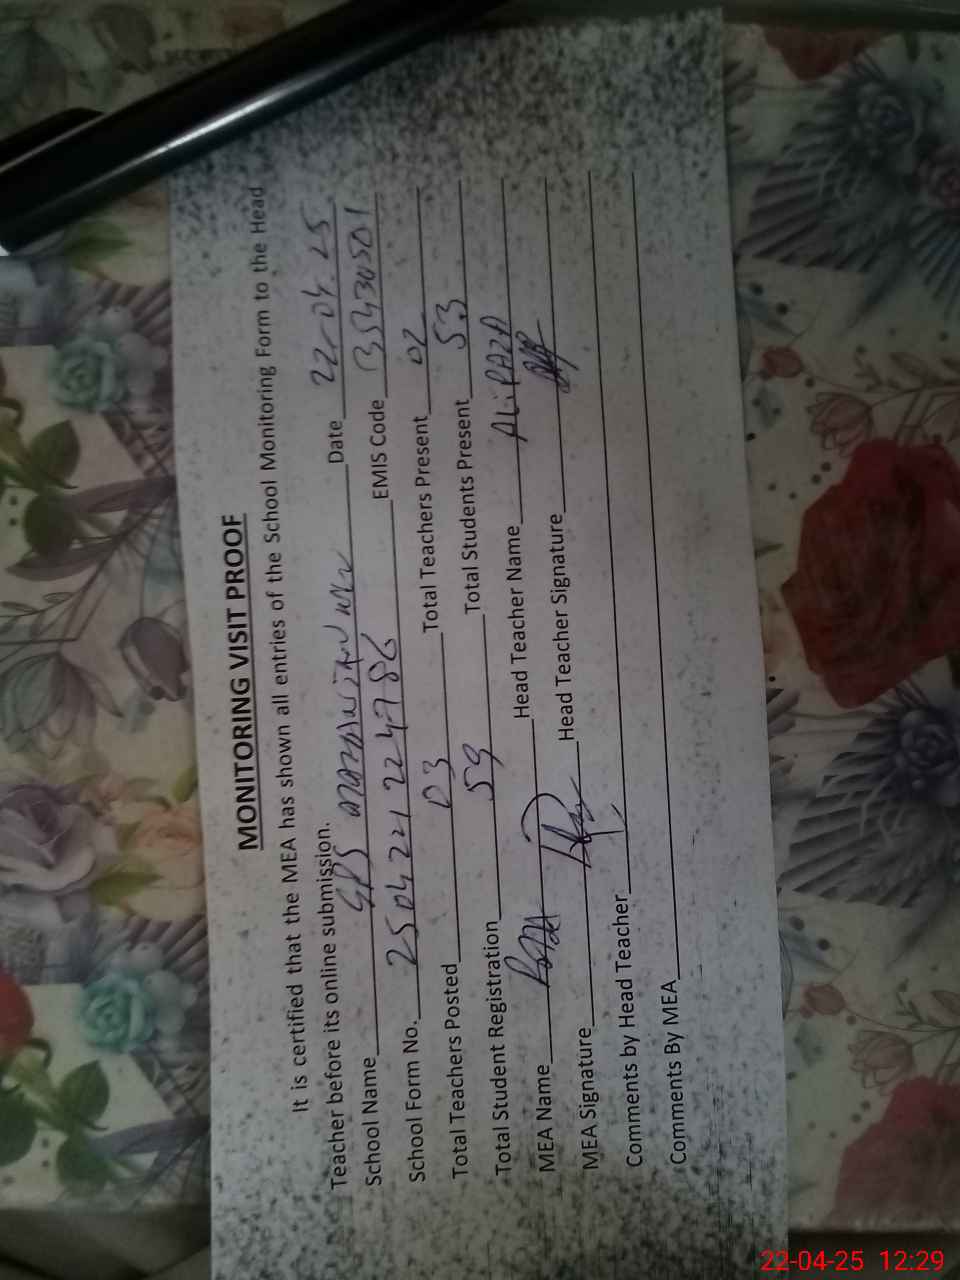 MONITORING VISIT PROOF
It is certified that the MEA has shown all entries of the School Monitoring Form to the Head
Teacher before its online submission.
School Name GPS Date 22-04-25
School Form No. 2504221224786 EMIS Code
Total Teachers Posted 03 Total Teachers Present 02
Total Student Registration 59 Total Students Present 53
MEA Name Head Teacher Name Ali RAZA
MEA Signature Head Teacher Signature
Comments by Head Teacher
Comments By MEA
22-04-25 12:29